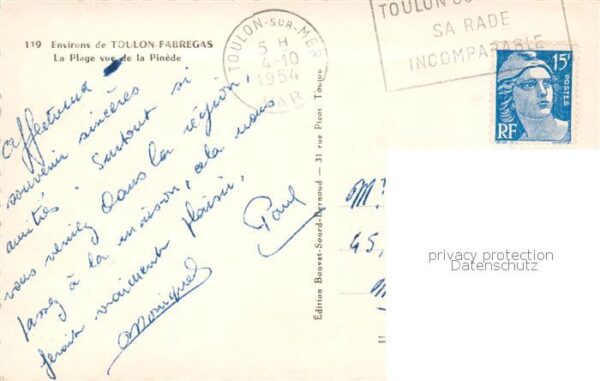 119 Environs de TOULON-FABREGAS
La Plage vue de la Pinède
TOULON-SUR-MER
5 H
4-10
1954
VAR
TOULON
SA RADE
INCOMPARABLE
15F
POSTES
RF
Affectueux
souvenir sincères
amitiés. Surtout si
vous venez dans la région,
passez à la maison, cela nous
ferait vraiment plaisir.
Paul
Monique
Édition Bouvet-Sourd-Bernoud — 31 rue Picot Toulon
M
45,
privacy protection
Datenschutz